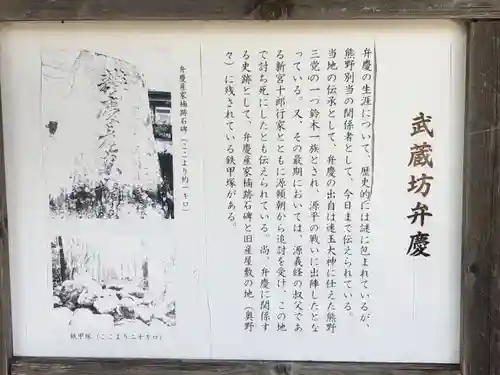 武蔵坊弁慶
弁慶の生涯について、歴史的には謎に包まれているが、
熊野別当の関係者として、今日まで伝えられている。
当地の伝承として、弁慶の出自は速玉大神に仕えた熊野
三党の一つ鈴木一族とされ、源平の戦いに出陣したとな
っている。又、その最期においては、源義経の叔父であ
る新宮十郎行家とともに源頼朝から追討を受け、この地
で討ち死にしたとも伝えられている。尚、弁慶に関係す
る史跡として、弁慶産家楠跡石碑と旧産屋敷の地(奥野
々)に残されている鉄甲塚がある。
弁慶産家楠跡石碑(ここより約一キロ)
鉄甲塚(ここより二十キロ)